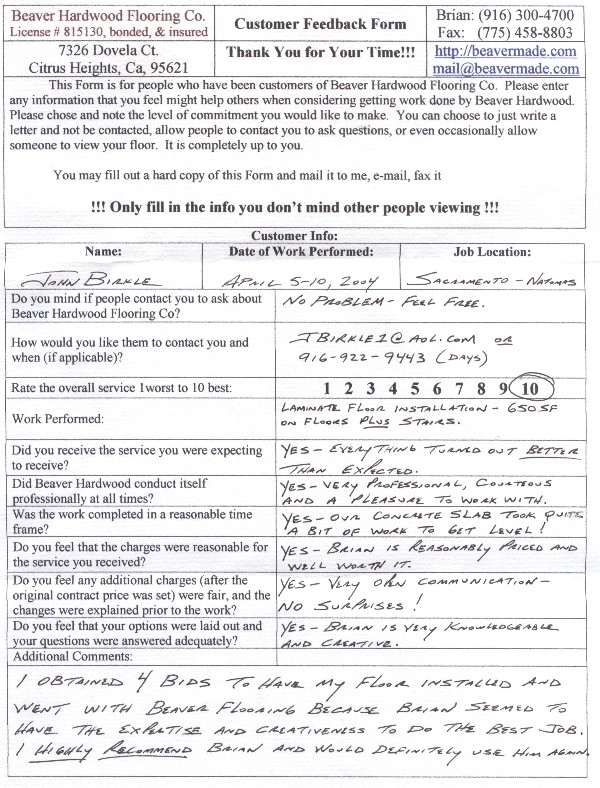 Beaver Hardwood Flooring Co.
License # 815130, bonded, & insured
Customer Feedback Form
Brian: (916) 300-4700
Fax: (775) 458-8803
7326 Dovela Ct.
Citrus Heights, Ca, 95621
Thank You for Your Time!!!
http://beavermade.com
mail@beavermade.com
This Form is for people who have been customers of Beaver Hardwood Flooring Co. Please enter
any information that you feel might help others when considering getting work done by Beaver Hardwood.
Please chose and note the level of commitment you would like to make. You can choose to just write a
letter and not be contacted, allow people to contact you to ask questions, or even occasionally allow
someone to view your floor. It is completely up to you.
You may fill out a hard copy of this Form and mail it to me, e-mail, fax it
!!! Only fill in the info you don't mind other people viewing !!!
Customer Info:
Name: Date of Work Performed: Job Location:
John Birkle April 5-10, 2004 Sacramento - Natomas
Do you mind if people contact you to ask about
Beaver Hardwood Flooring Co?
No Problem - Feel Free.
How would you like them to contact you and
when (if applicable)?
JBirkle1@aol.com or
916-922-9443 (Days)
Rate the overall service 1worst to 10 best:
1 2 3 4 5 6 7 8 9 10
Work Performed:
Laminate Floor Installation - 650 SF
on Floors Plus Stairs.
Did you receive the service you were expecting
to receive?
Yes - Everything Turned out Better
Than Expected.
Did Beaver Hardwood conduct itself
professionally at all times?
Yes - Very Professional, Courteous
and a Pleasure to Work With.
Was the work completed in a reasonable time
frame?
Yes - Our Concrete Slab Took Quite
a Bit of Work to Get Level!
Do you feel that the charges were reasonable for
the service you received?
Yes - Brian is Reasonably Priced and
Well Worth It.
Do you feel any additional charges (after the
original contract price was set) were fair, and the
changes were explained prior to the work?
Yes - Very Open Communication -
No Surprises!
Do you feel that your options were laid out and
your questions were answered adequately?
Yes - Brian is Very Knowledgeable
and Creative.
Additional Comments:
I Obtained 4 Bids To Have My Floor Installed and
Went With Beaver Flooring Because Brian Seemed To
Have The Expertise and Creativeness To Do The Best Job.
I Highly Recommend Brian and Would Definitely Use Him Again.